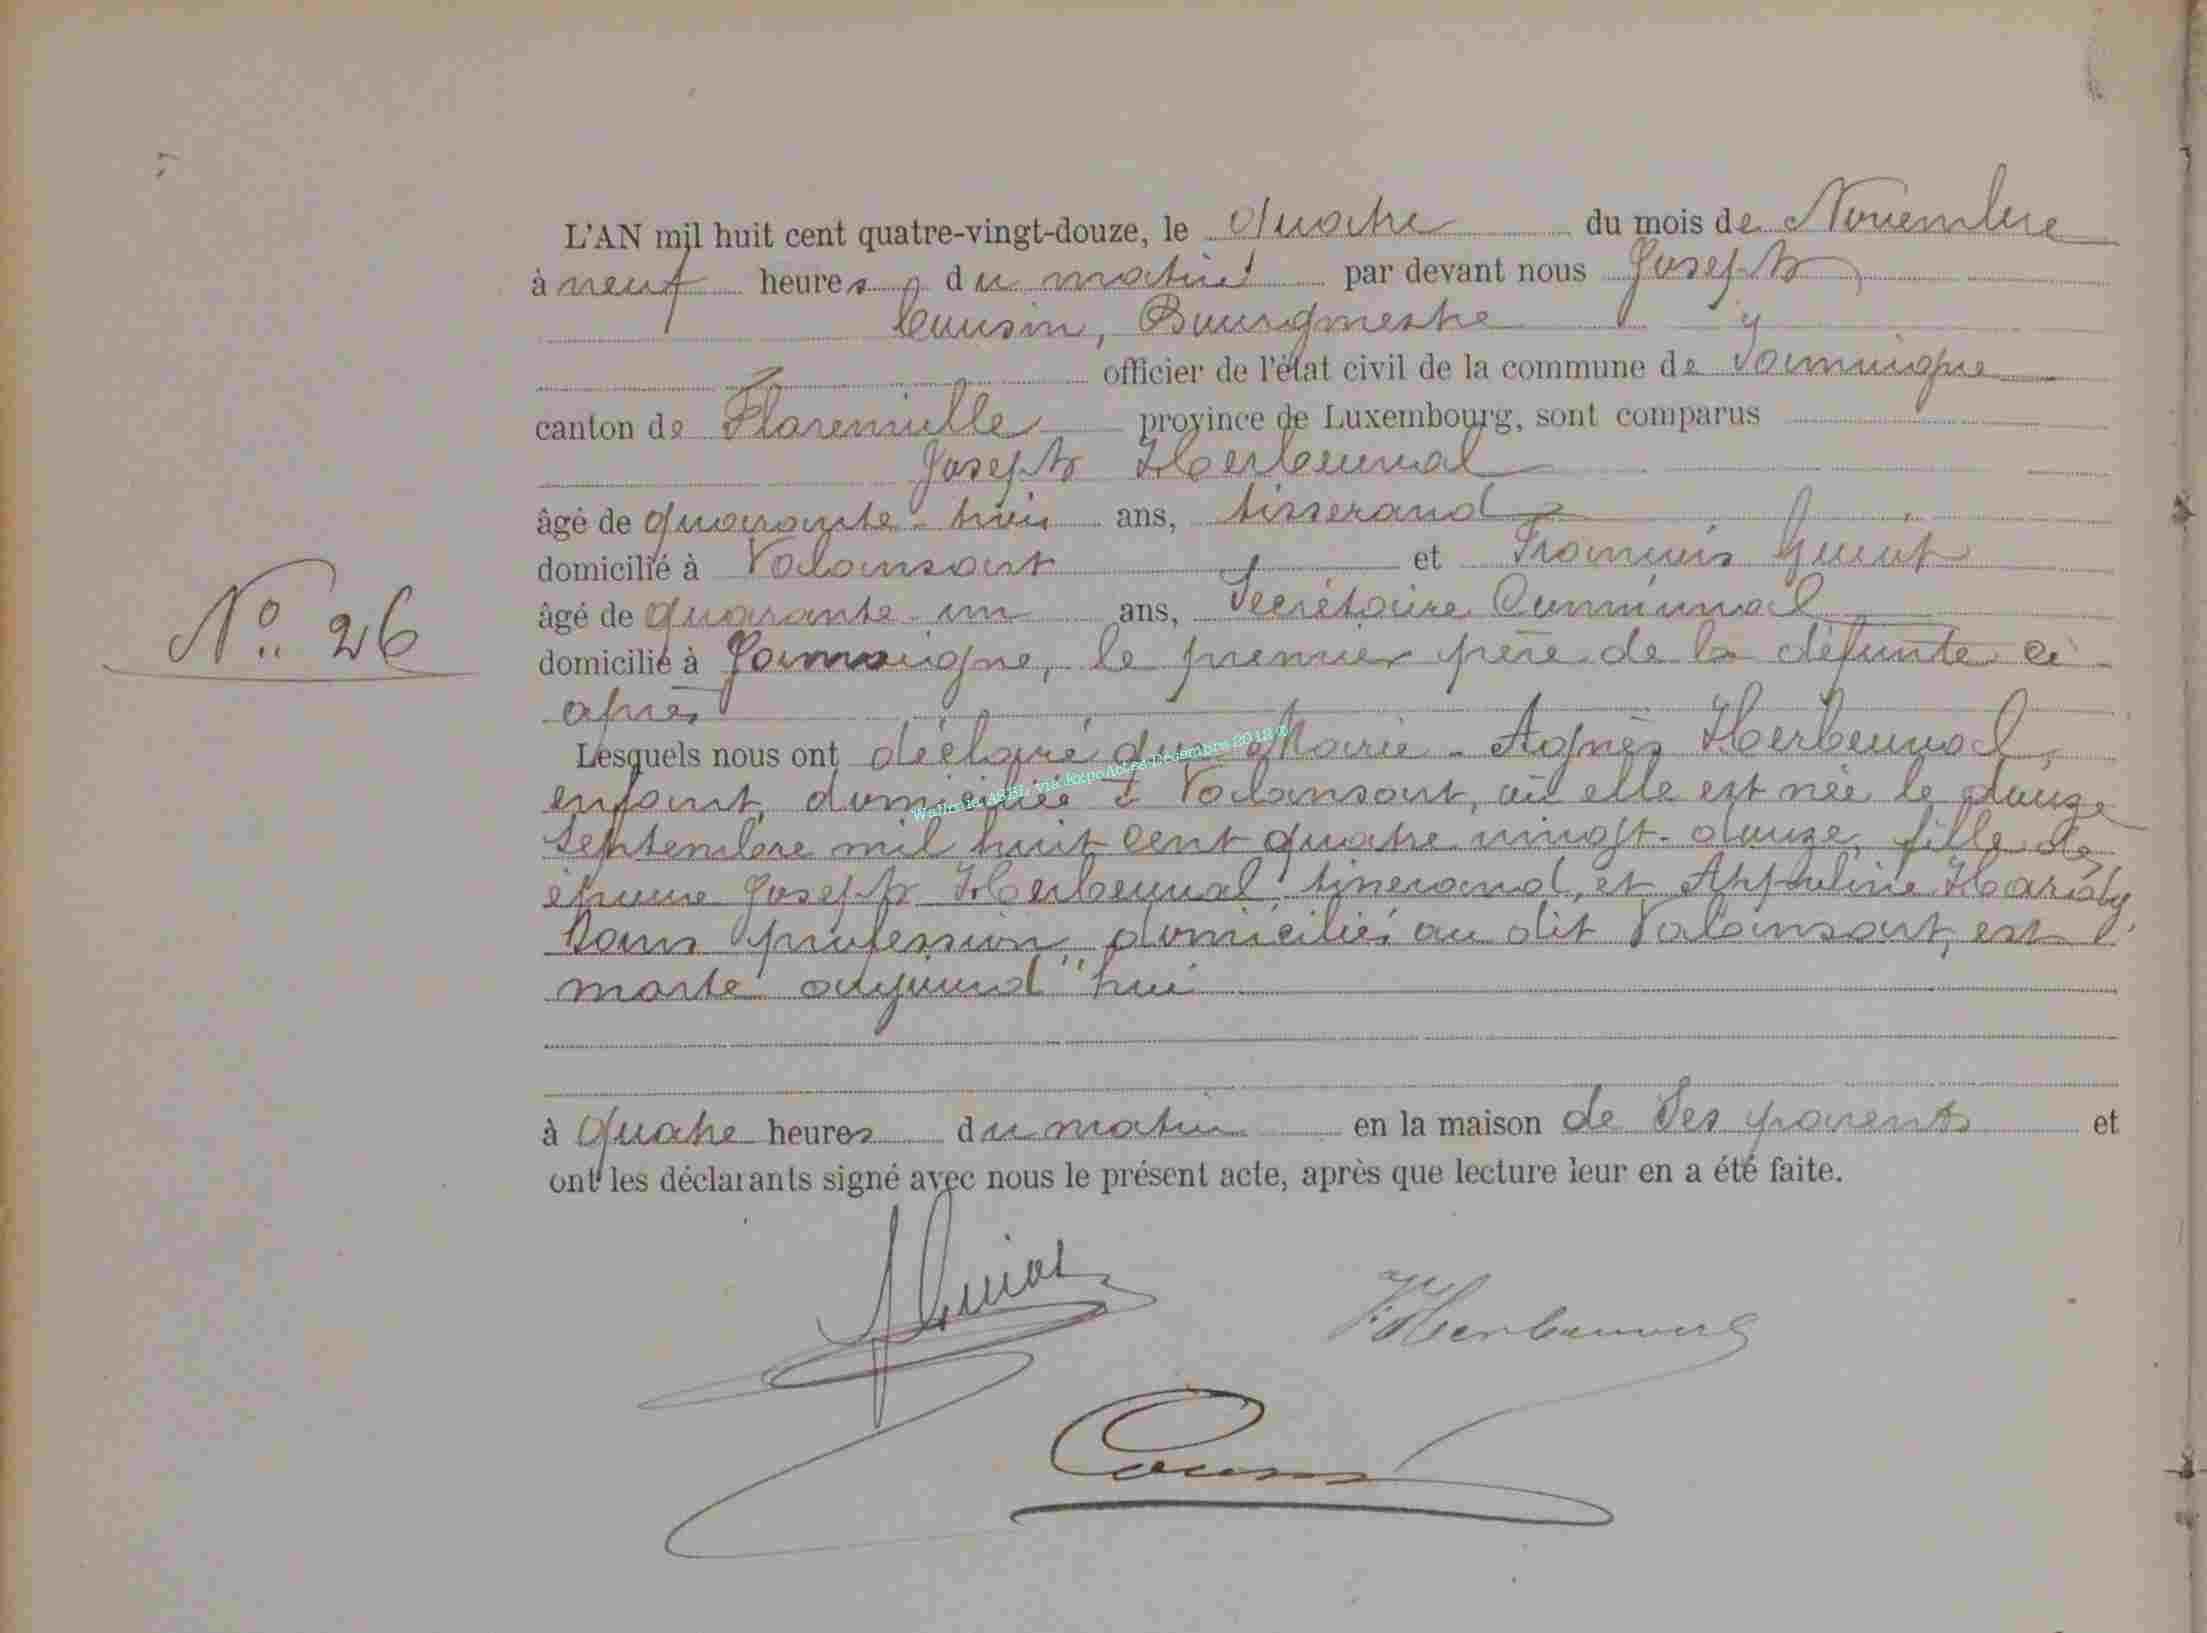 L'AN mil huit cent quatre-vingt-douze, le quatre du mois de Novembre
à neuf heures du matin par devant nous Joseph
Cousin, Bourgmestre
officier de l'état civil de la commune de Jamoigne
canton de Florenville province de Luxembourg, sont comparus
Joseph Herbeuval
âgé de quarante-trois ans, tisserand
domicilié à Valansart et François Guiot
âgé de quarante-un ans, Secrétaire Communal
domicilié à Jamoigne, le premier père de la défunte ci-
après
Lesquels nous ont déclaré que Marie-Agnès Herbeuval,
enfant, domiciliée à Valansart, où elle est née le douze
Septembre mil huit cent quatre vingt-douze, fille de
époux Joseph Herbeuval, tisserand, et Appoline
Sans profession, domiciliés au dit Valansart, est
morte aujourd'hui
à quatre heures du matin en la maison de Ses parents et
ont les déclarants signé avec nous le présent acte, après que lecture leur en a été faite.
No. 26
Wallonia ASBL via ExpoActes Décembre 2018
Guiot
Herbeuval
Cousin